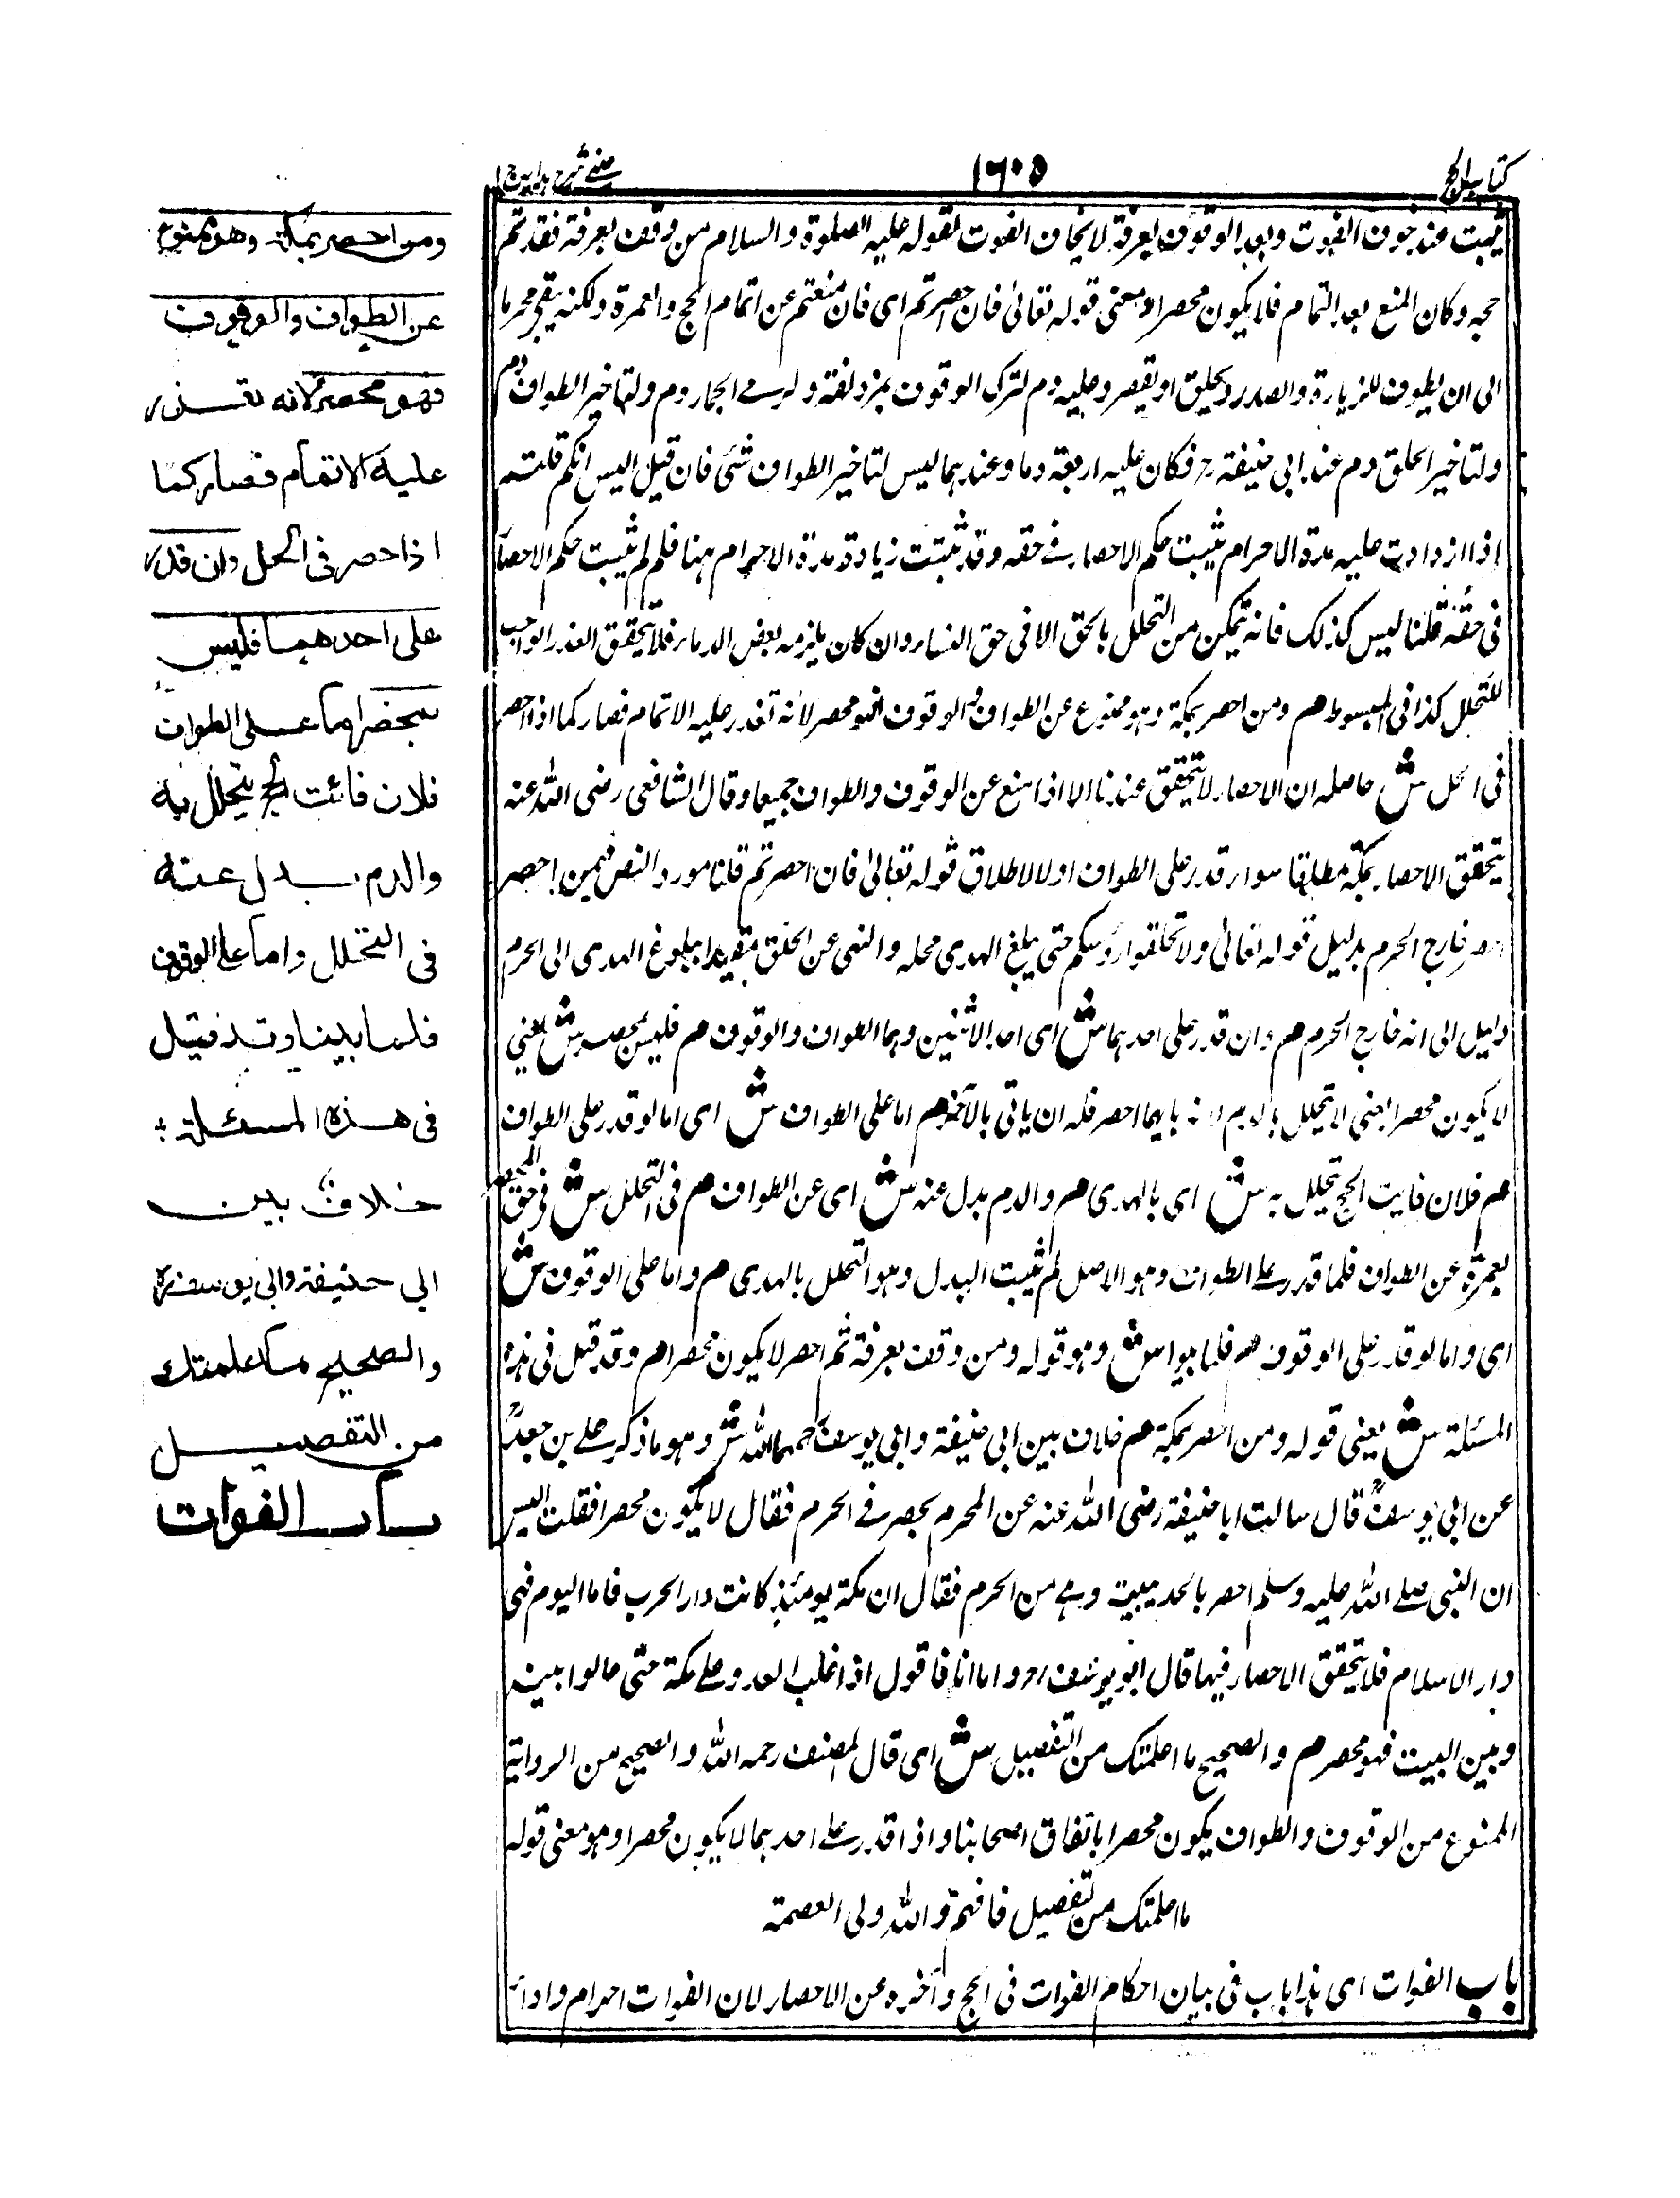 كتاب الحج
١٦٠٥
عيني شرح هداية ج ١
يثبت عند خوف الفوت وبعد الوقوف بعرفة لا يخاف الفوت لقوله عليه الصلوة والسلام من وقف بعرفة فقد تم
حجه وكان المنع بعد التمام فلا يكون محصرا ومعنى قوله تعالى فان احصرتم اى فان منعتم عن اتمام الحج والعمرة ولكنه يبقى محرما
الى ان يطوف للزيارة والصدر ويحلق او يقصر وعليه دم لترك الوقوف بمزدلفة ولرمى الجمار دم ولتاخير الطواف دم
ولتاخير الحلق دم عند ابى حنيفة رح فكان عليه اربعة دما وعندهما ليس لتاخير الطواف شئ فان قيل اليس انكم قلتم
اذا ازدادت عليه مدة الاحرام يثبت حكم الاحصار فى حقه وقد ثبتت زيادة مدة الاحرام هنا فلم لم يثبت حكم الاحصار
فى حقه قلنا ليس كذلك فانه يتمكن من التحلل بالحلق الا فى حق النساء وان كان يلزمه بعض الدماء فلا يتحقق العذر الواجب
للتحلل كذا فى المبسوط م ومن احصر بمكة وهو ممنوع عن الطواف والوقوف فهو محصر لانه تعذر عليه الاتمام فصار كما اذا احصر
فى الحل ش حاصله ان الاحصار لا يتحقق عندنا الا اذا منع عن الوقوف والطواف جميعا وقال الشافعى رضى الله عنه
يتحقق الاحصار بمكة مطلقا سواء قدر على الطواف اولا لاطلاق قوله تعالى فان احصرتم قلنا مورد النص فيمن احصر
خارج الحرم بدليل قوله تعالى ولا تحلقوا رؤسكم حتى يبلغ الهدى محله والنهى عن الحلق مقيدا ببلوغ الهدى الى الحرم
دليل الى انه خارج الحرم م وان قدر على احدهما ش اى احد الاثنين وهما الطواف والوقوف م فليس بمحصر ش يعنى
لا يكون محصرا يعنى لا يتحلل بالدم لانه بايهما احصر فله ان ياتى بالآخر م اما على الطواف ش اى اما لو قدر على الطواف
م فلان فايت الحج يتحلل به ش اى بالهدى م والدم بدل عنه ش اى عن الطواف م فى التحلل ش فى حق المحصر
بعمرة عن الطواف فلما قدر على الطواف وهو الاصل لم يثبت البدل وهو التحلل بالهدى م واما على الوقوف ش
اى واما لو قدر على الوقوف م فلما بينا ش وهو قوله ومن وقف بعرفة ثم احصر لا يكون محصرا م وقد قيل فى هذه
المسئلة ش يعنى قوله ومن احصر بمكة م خلاف بين ابى حنيفة وابى يوسف رحمهما الله ش وهو ما ذكر على بن جعد
عن ابى يوسف قال سالت ابا حنيفة رضى الله عنه عن المحرم يحصر فى الحرم فقال لا يكون محصرا فقلت اليس
ان النبى صلى الله عليه وسلم احصر بالحديبية وهى من الحرم فقال ان مكة يومئذ كانت دار الحرب فاما اليوم فهى
دار الاسلام فلا يتحقق الاحصار فيها قال ابو يوسف رح واما انا فاقول اذا غلب العدو على مكة حتى حالوا بينه
وبين البيت فهو محصر م والصحيح ما اعلمتك من التفصيل ش اى قال المصنف رحمه الله والصحيح من الرواية
الممنوع من الوقوف والطواف يكون محصرا باتفاق اصحابنا واذا قدر على احدهما لا يكون محصرا وهو معنى قوله
ما اعلمتك من التفصيل فافهم والله ولى العصمة
باب الفوات اى هذا باب فى بيان احكام الفوات فى الحج وآخره عن الاحصار لان الفوات احرام واداء
ومن احصر بمكة وهو ممنوع
عن الطواف والوقوف
فهو محصر لانه تعذر
عليه الاتمام فصار كما
اذا احصر فى الحل وان قدر
على احدهما فليس
بمحصر اما على الطواف
فلان فائت الحج يتحلل به
والدم بدل عنه
فى التحلل واما على الوقوف
فلما بينا وقد قيل
فى هذه المسئلة
خلاف بين
ابي حنيفة وابي يوسف رح
والصحيح ما اعلمتك
من التفصيل
باب الفوات